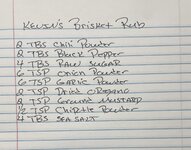 Kevin's Brisket Rub
2 TBS Chili Powder
2 TBS Black Pepper
4 TBS Raw Sugar
6 TSP Onion Powder
6 TSP Garlic Powder
2 TSP Dried Oregano
2 TSP Ground Mustard
½ TSP Chipotle Powder
4 TBS Sea Salt